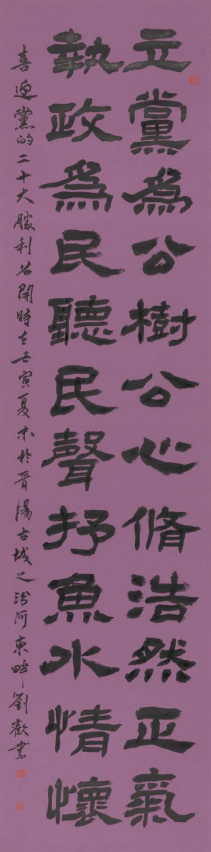 立黨為公樹公心脩浩然正氣
執政為民聽民聲抒魚水情懷
喜迎黨的二十大勝利召開時在壬寅夏末於晉陽古城之汾河東畔劉歡業